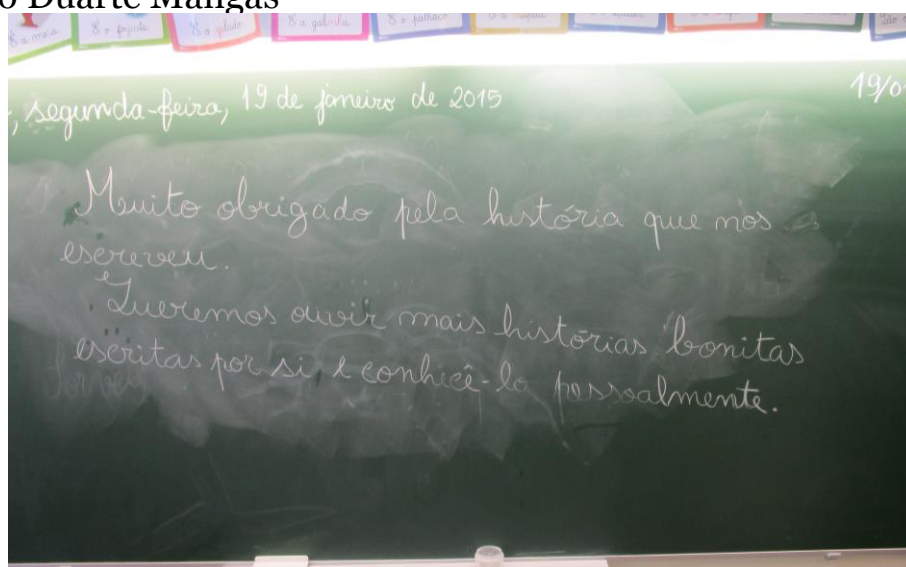 o Duarte Mangas
a meia o foguete o gelado a galinha o palhaço
, segunda-feira, 19 de janeiro de 2015 19/0
Muito obrigado pela história que nos
escreveu.
Queremos ouvir mais histórias bonitas
escritas por si e conhecê-lo pessoalmente.